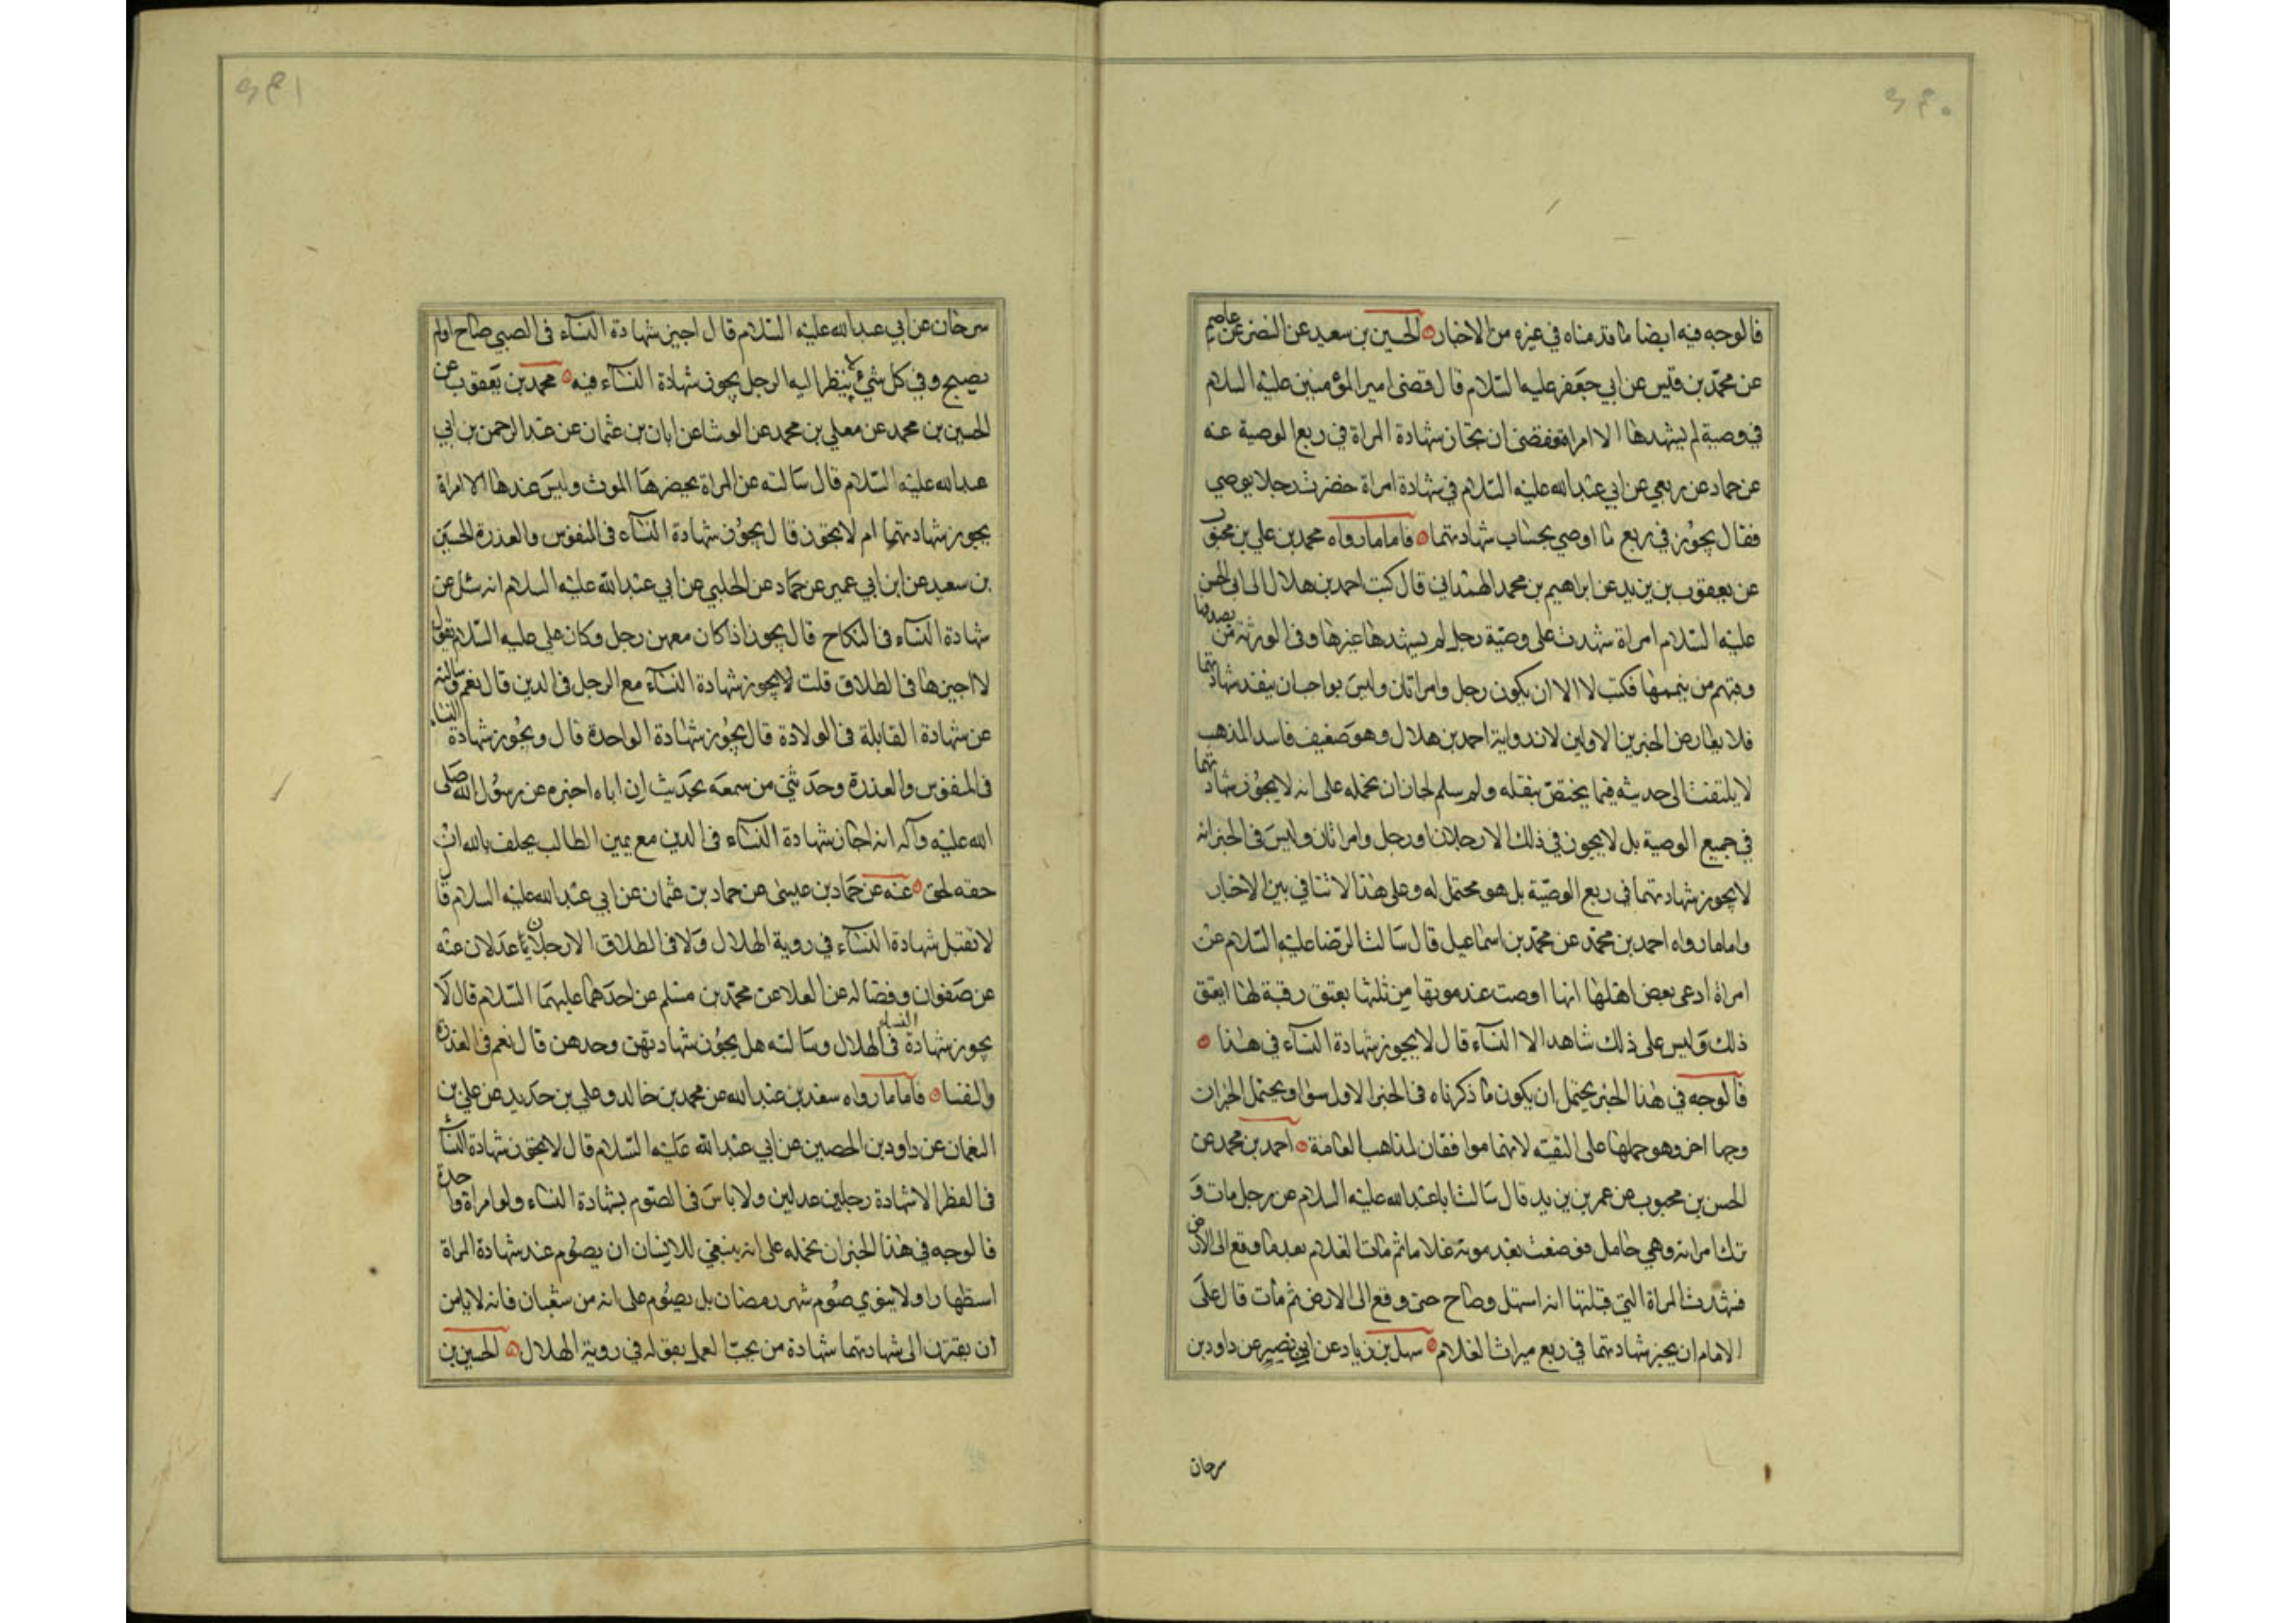 ٤٤٠
فالوجه فيه ايضا ما قدمناه في غيره من الاخبار الحسين بن سعيد عن النضر عن عاصم
عن محمد بن قيس عن ابي جعفر عليه السلام قال قضى امير المؤمنين عليه السلام
في وصية لم يشهدها الا امراة فقضى ان تجاز شهادة المراة في ربع الوصية عنه
عن حماد عن ربعي عن ابي عبد الله عليه السلام في شهادة امراة حضرت رجلا يوصي
فقال يجوز في ربع ما اوصي بحساب شهادتها فاما ما رواه محمد بن علي بن محبوب
عن يعقوب بن يزيد عن ابراهيم بن محمد الهمداني قال كتب احمد بن هلال الى ابي الحسن
عليه السلام امراة شهدت على وصية رجل لم يشهدها غيرها وفي الورثة من يصدقها
وفيهم من يتهمها فكتب لا الا ان يكون رجل وامراتان وليس بواجب ان ينفد شهادتها
فلا يعارض الخبرين الاولين لانه رواية احمد بن هلال وهو ضعيف فاسد المذهب
لا يلتفت الى حديثه فيما يختص بنقله ولو سلم لجاز ان نحمله على انه لا يجوز شهادتها
في جميع الوصية بل لا يجوز في ذلك الا رجلان او رجل وامراتان وليس في الخبر انه
لا يجوز شهادتها في ربع الوصية بل هو محتمل له وعلى هذا لا تنافي بين الاخبار
واما ما رواه احمد بن محمد عن محمد بن اسماعيل قال سالت الرضا عليه السلام عن
امراة ادعى بعض اهلها انها اوصت عند موتها من ثلثها بعتق رقبة لها ايعتق
ذلك وليس على ذلك شاهد الا النساء قال لا يجوز شهادة النساء في هذا
فالوجه في هذا الخبر يحتمل ان يكون ما ذكرناه في الخبر الاول سوا ويحتمل الخبران
وجها اخر وهو حملها على التقية لانهما موافقان لمذاهب العامة احمد بن محمد عن
الحسن بن محبوب عن عمر بن يزيد قال سالت ابا عبد الله عليه السلام عن رجل مات و
ترك امراته وهي حامل فوضعت بعد موته غلاما ثم مات الغلام بعد ما وقع الى الارض
فشهدت المراة التي قبلتها انه استهل وصاح حين وقع الى الارض ثم مات قال على
الامام ان يجيز شهادتها في ربع ميراث الغلام سهل بن زياد عن ابي نصير عن داود بن
سرحان
٤٤١
سرحان عن ابي عبد الله عليه السلام قال اجيز شهادة النساء في الصبي صاح او لم
يصيح وفي كل شيء لا ينظر اليه الرجل يجوز شهادة النساء فيه محمد بن يعقوب عن
الحسين بن محمد عن معلي بن محمد عن الوشا عن ابان بن عثمان عن عبد الرحمن بن ابي
عبد الله عليه السلام قال سالته عن المراة يحضرها الموت وليس عندها الا امراة
يجوز شهادتها ام لا يجوز قال يجوز شهادة النساء في المنفوس والعذرة الحسين
بن سعيد عن ابن ابي عمير عن حماد عن الحلبي عن ابي عبد الله عليه السلام انه سئل عن
شهادة النساء في النكاح قال يجوز اذا كان معهن رجل وكان علي عليه السلام يقول
لا اجيزها في الطلاق قلت لا يجوز شهادة النساء مع الرجل في الدين قال نعم وسالته
عن شهادة القابلة في الولادة قال يجوز شهادة الواحدة قال ويجوز شهادة النساء
في المنفوس والعذرة وحدثني من سمعه يحديث ان اباه اخبره عن رسول الله صلى
الله عليه وآله انه اجاز شهادة النساء في الدين مع يمين الطالب يحلف بالله ان
حقه لحق عنه عن حماد بن عيسى عن حماد بن عثمان عن ابي عبد الله عليه السلام قال
لا تقبل شهادة النساء في روية الهلال ولا في الطلاق الا رجلان عدلان عنه
عن صفوان وفضاله عن العلا عن محمد بن مسلم عن احدهما عليهما السلام قال لا
يجوز شهادة النساء في الهلال وسالته هل يجوز شهادتهن وحدهن قال نعم في العذرة
والنفسا فاما ما رواه سعد بن عبد الله عن محمد بن خالد وعلي بن حديد عن علي بن
النعمان عن داود بن الحصين عن ابي عبد الله عليه السلام قال لا يجوز شهادة النساء
في الفطر الا شهادة رجلين عدلين ولا باس في الصوم بشهادة النساء ولو امراة واحدة
فالوجه في هذا الخبر ان نحمله على انه ينبغي للانسان ان يصوم عند شهادة المراة
استظهارا ولا ينوي صوم شهر رمضان بل يصوم على انه من شعبان فانه لا يامن
ان يقترن الى شهادتها شهادة من يجب العمل بقوله في روية الهلال الحسين بن